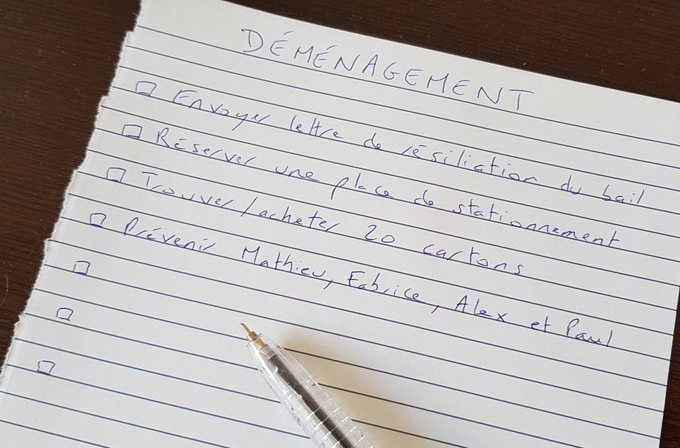 DÉMÉNAGEMENT
Envoyer lettre de résiliation du bail
Réserver une place de stationnement
Trouver/acheter 20 cartons
Prévenir Mathieu, Fabrice, Alex et Paul